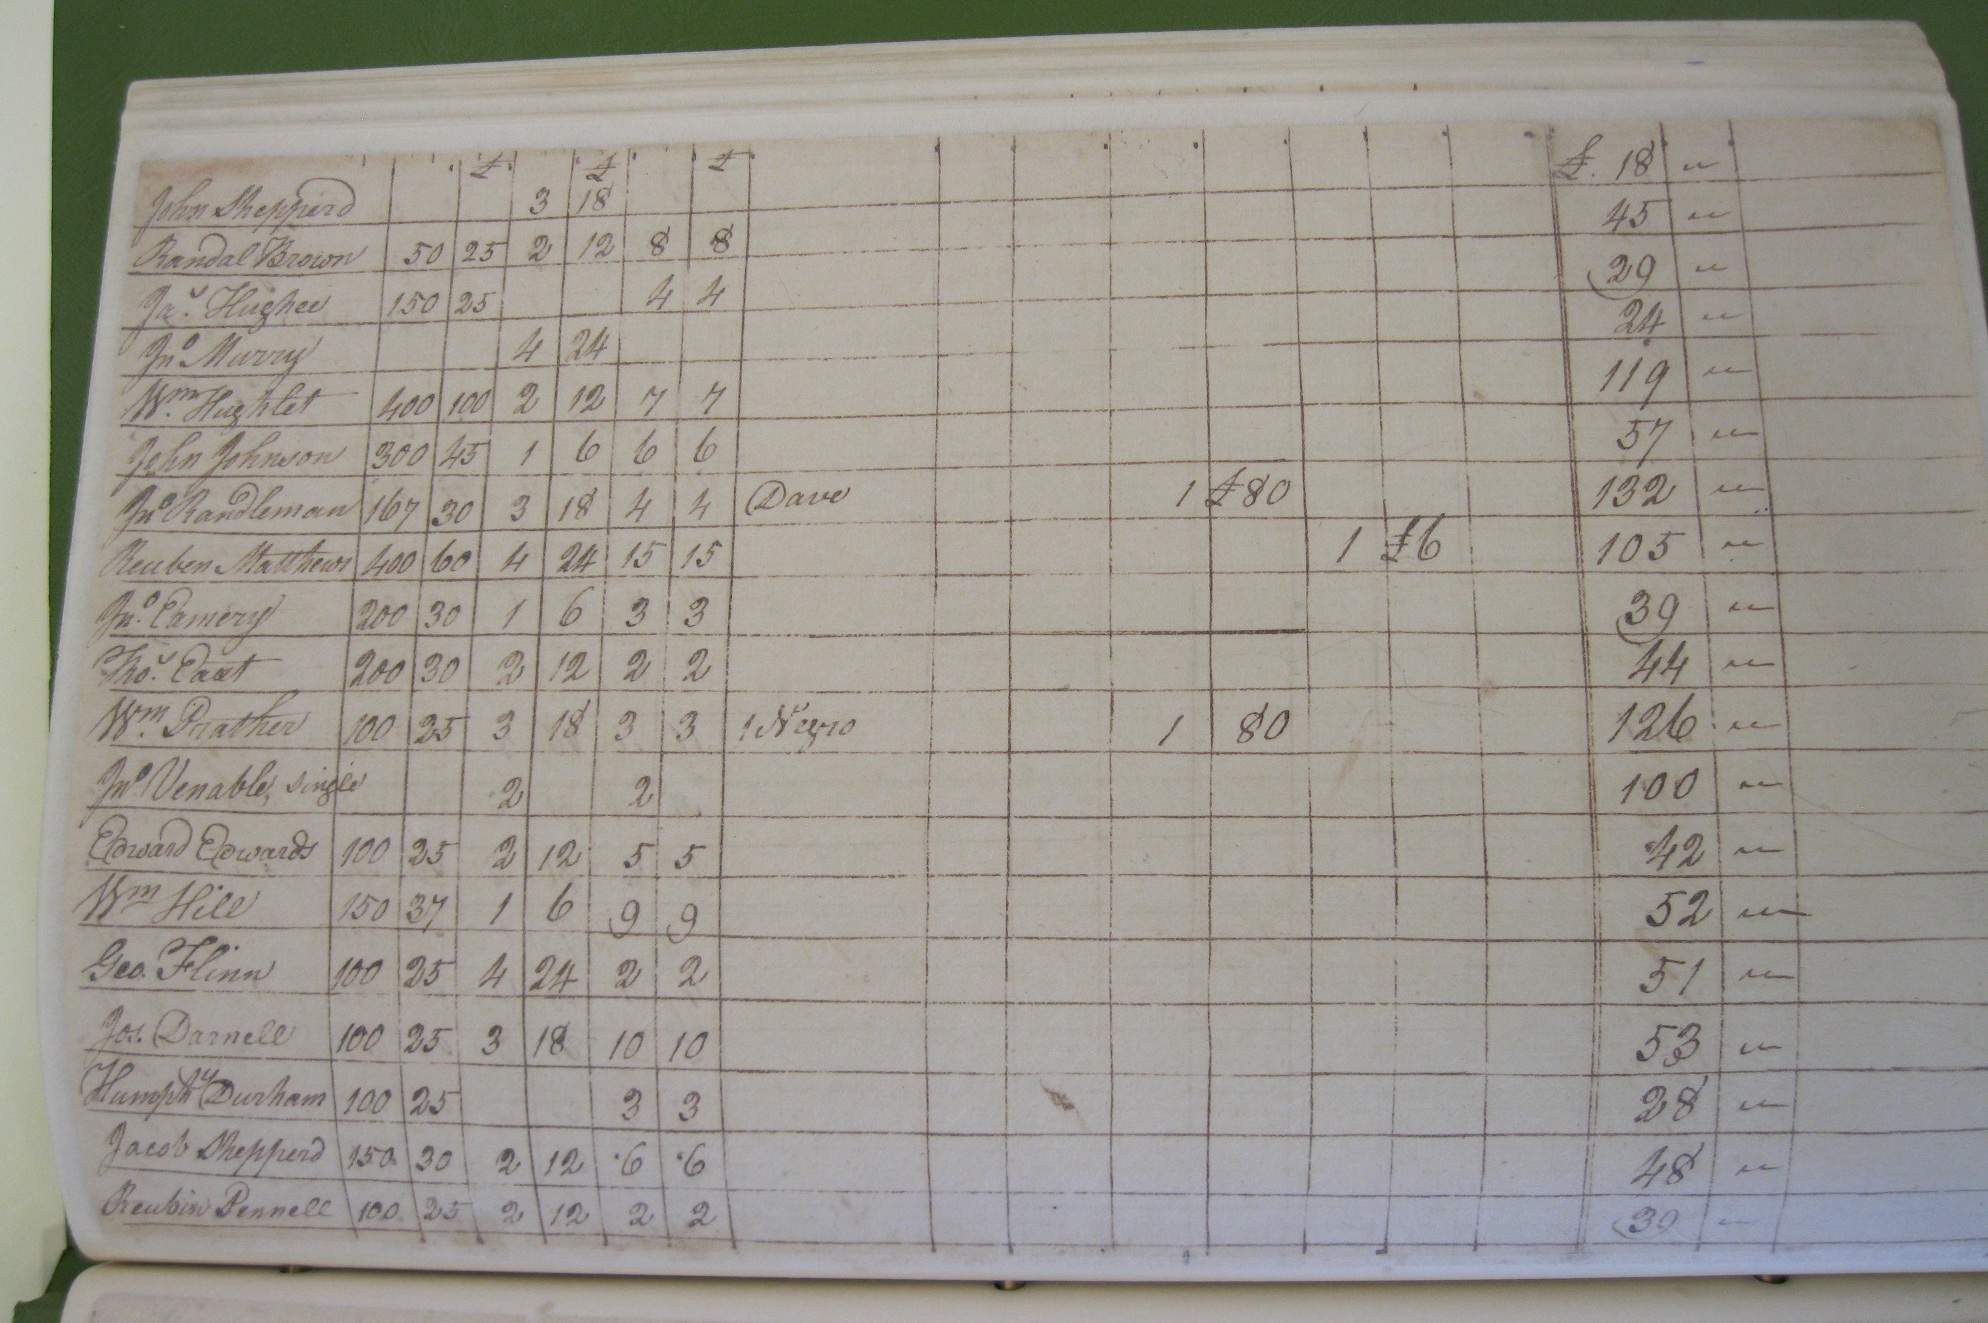 £ £ £
John Shepperd 3 18 £. 18 "
Randal Brown 50 25 2 12 8 8 45 "
Jas. Hughee 150 25 4 4 29 "
Jno Murry 4 24 24 "
Wm. Hughlet 400 100 2 12 7 7 119 "
John Johnson 300 45 1 6 6 6 57 "
Jno Randleman 167 30 3 18 4 4 Dave 1 £80 132 "
Reuben Matthews 400 60 4 24 15 15 1 £6 105 "
Jno. 200 30 1 6 3 3 39 "
Thos. East 200 30 2 12 2 2 44 "
Wm. Prather 100 25 3 18 3 3 1 Negro 1 80 126 "
Jno Venable, single 2 2 100 "
Edward Edwards 100 25 2 12 5 5 42 "
Wm Hill 150 37 1 6 9 9 52 "
Geo. Flinn 100 25 4 24 2 2 51 "
Jos. Darnell 100 25 3 18 10 10 53 "
Humphy Durham 100 25 3 3 28 "
Jacob Shepperd 150 30 2 12 6 6 48 "
Reubin Pennell 100 25 2 12 2 2 39 "